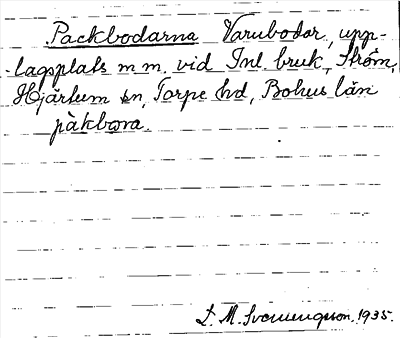 Packbodarna Varubodar, upp-
-lagsplats m m. vid Inl. bruk, Ström,
Hjärtum sn, Torpe hd, Bohus län
pàkbωra.
L. M. Svenungsson. 1935.